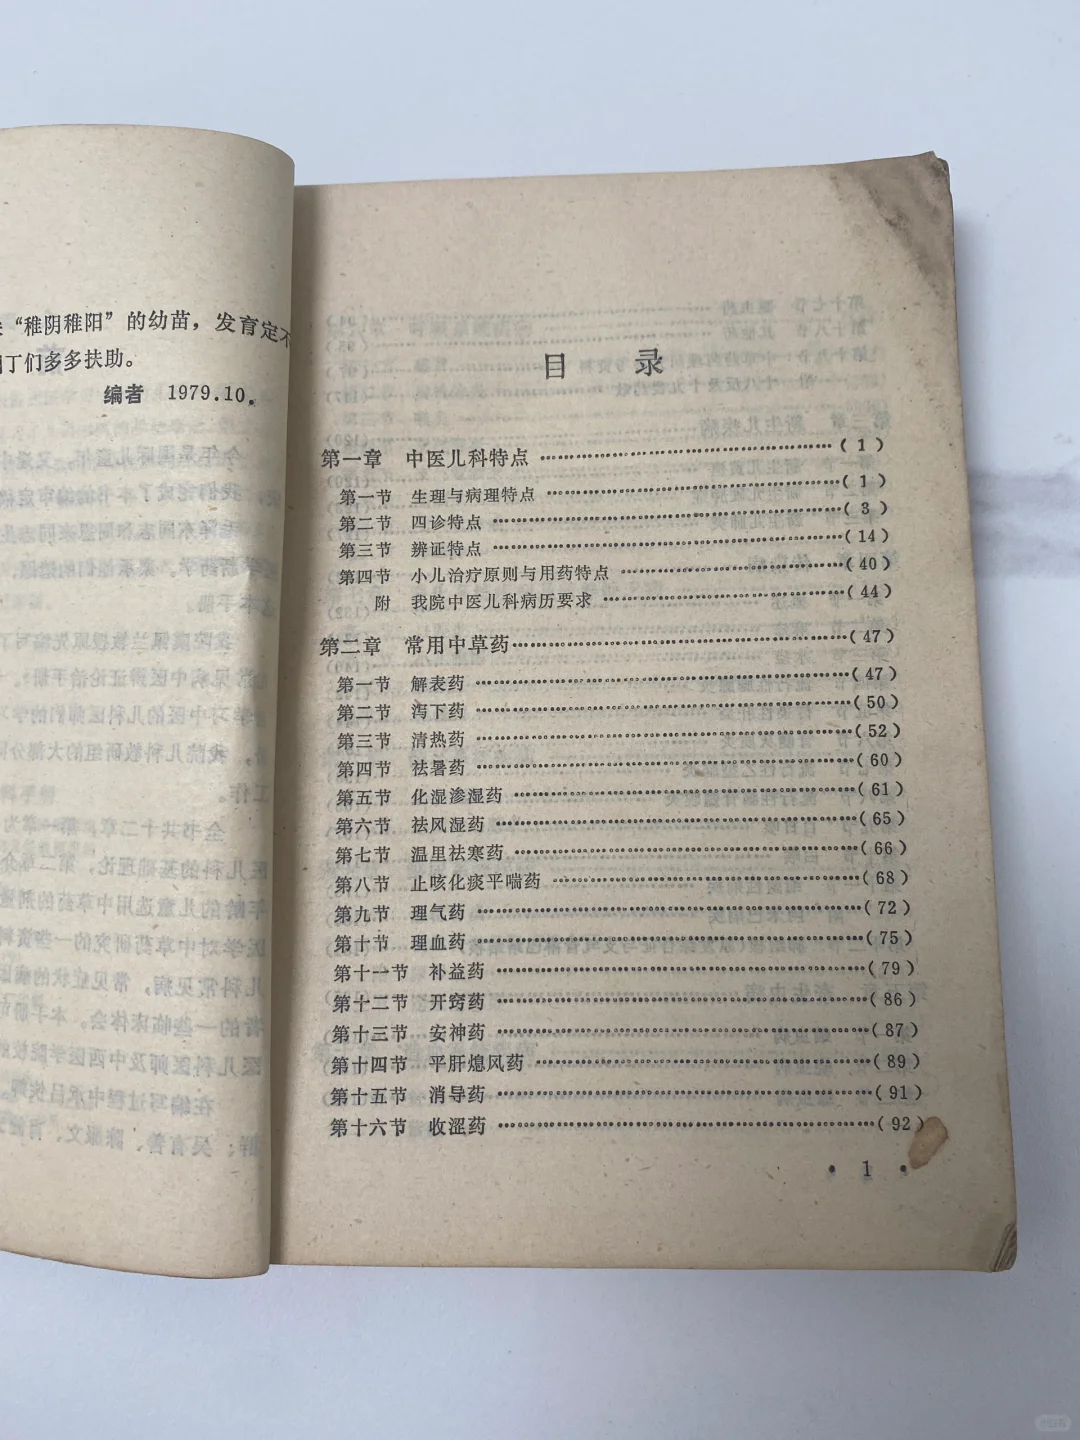 “稚阴稚阳”的幼苗，发育定不
丁们多多扶助。
编者 1979.10.
目 录
第一章 中医儿科特点 ……(1)
第一节 生理与病理特点 ……(1)
第二节 四诊特点 ……(3)
第三节 辨证特点 ……(14)
第四节 小儿治疗原则与用药特点 ……(40)
附 我院中医儿科病历要求 ……(44)
第二章 常用中草药……(47)
第一节 解表药 ……(47)
第二节 泻下药 ……(50)
第三节 清热药 ……(52)
第四节 祛暑药 ……(60)
第五节 化湿渗湿药 ……(61)
第六节 祛风湿药 ……(65)
第七节 温里祛寒药 ……(66)
第八节 止咳化痰平喘药 ……(68)
第九节 理气药 ……(72)
第十节 理血药 ……(75)
第十一节 补益药 ……(79)
第十二节 开窍药 ……(86)
第十三节 安神药 ……(87)
第十四节 平肝熄风药 ……(89)
第十五节 消导药 ……(91)
第十六节 收涩药 ……(92)
• 1 •